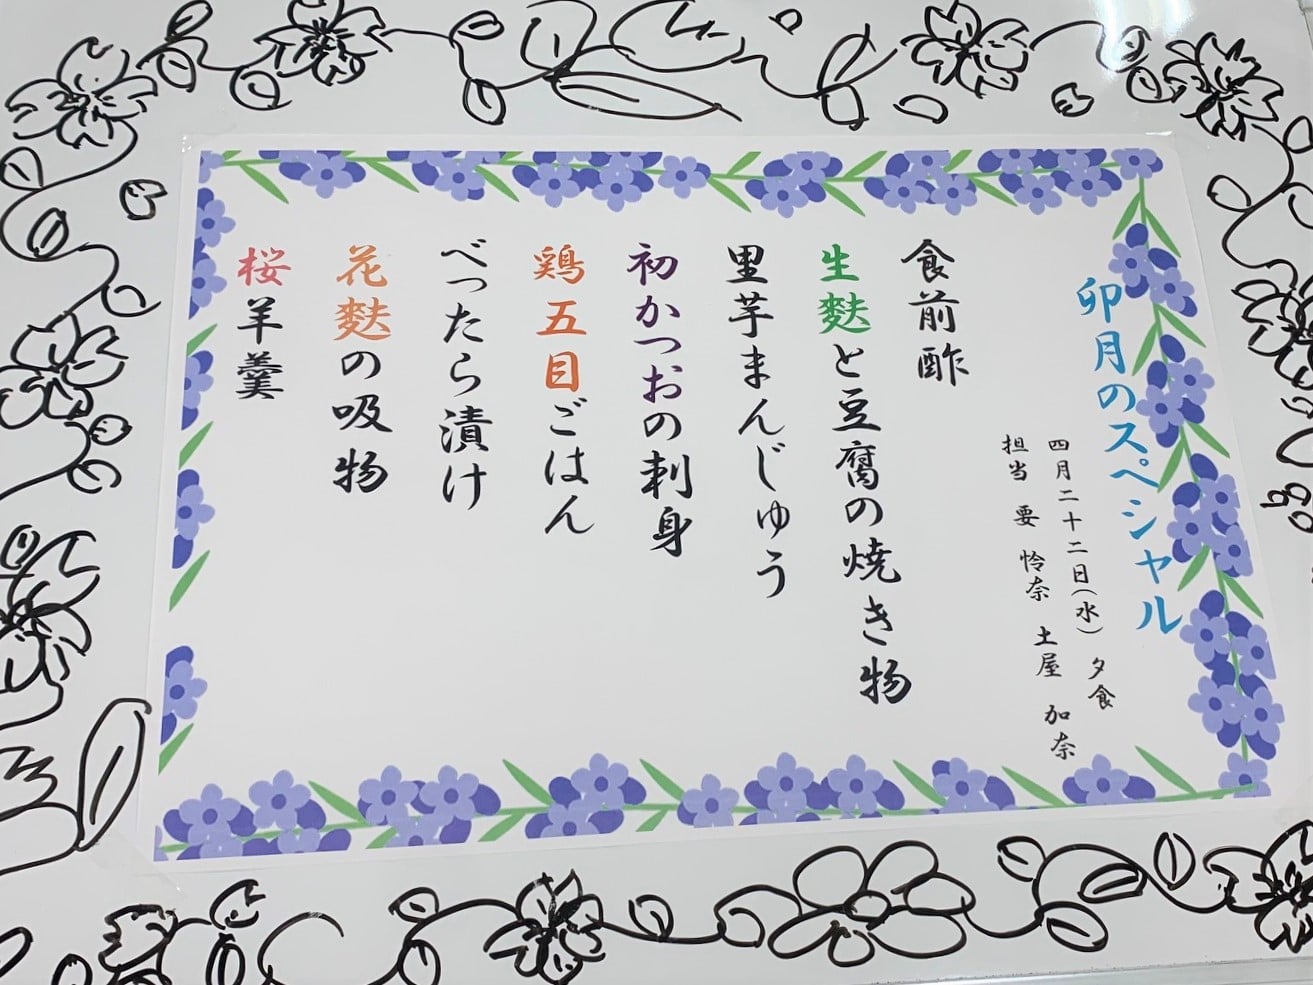 卯月のスペシャル
四月二十二日(水) 夕食
担当 要 怜奈 土屋 加奈
食前酢
生麩と豆腐の焼き物
里芋まんじゅう
初かつおの刺身
鶏五目ごはん
べったら漬け
花麩の吸物
桜羊羹